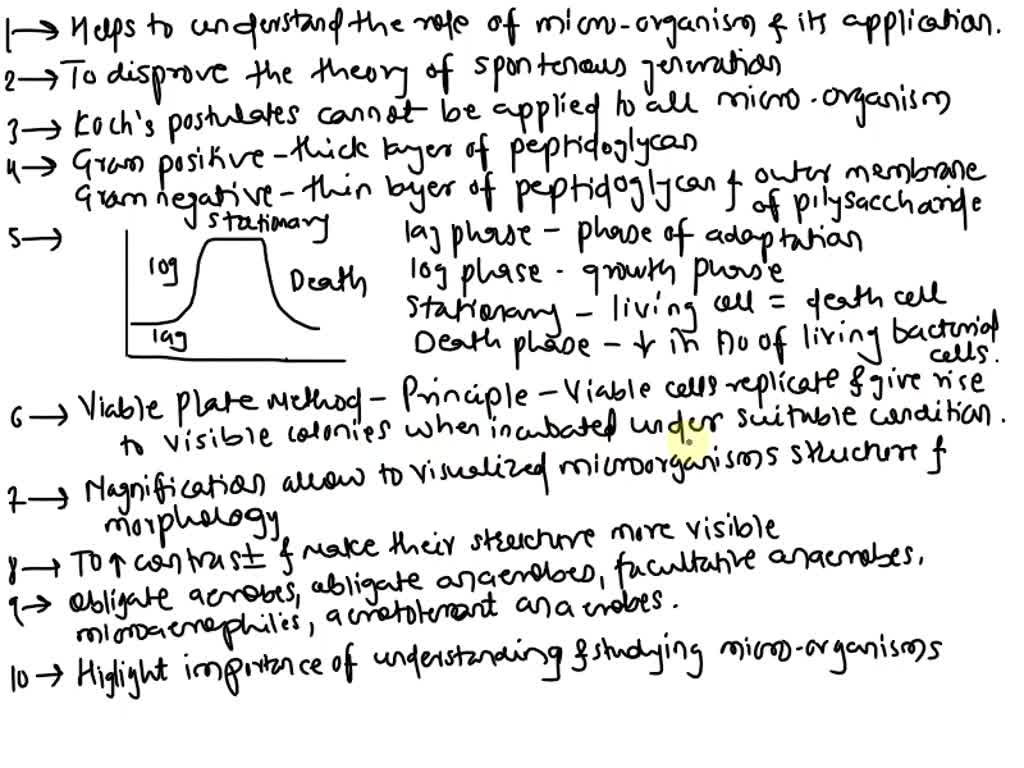 1→ Helps to understand the role of micro-organism & its application.
2→ To disprove the theory of spontenous generation
3→ Koch's postulates cannot be applied to all micro-organism
4→ Gram positive - thick layer of peptidoglycan
Gram negative - thin layer of peptidoglycan & outer membrane
of pilysaccharide
5→
stationary
log
Death
lag
lag phase - phase of adaptation
log phase - growth phase
Stationary - living cell = death cell
Death phase - ↓ in no of living bacterial
cells.
6→ Viable Plate Method - Principle - Viable cells replicate & give rise
to visible colonies when incubated under suitable condition.
7→ Magnification allow to visualized microorganisms structure &
morphology
8→ To ↑ contrast & make their structure more visible
9→ obligate aerobes, obligate anaerobes, facultative anaerobes,
microaerophiles, aerotolerant anaerobes.
10→ Higlight importance of understanding & studying micro-organisms